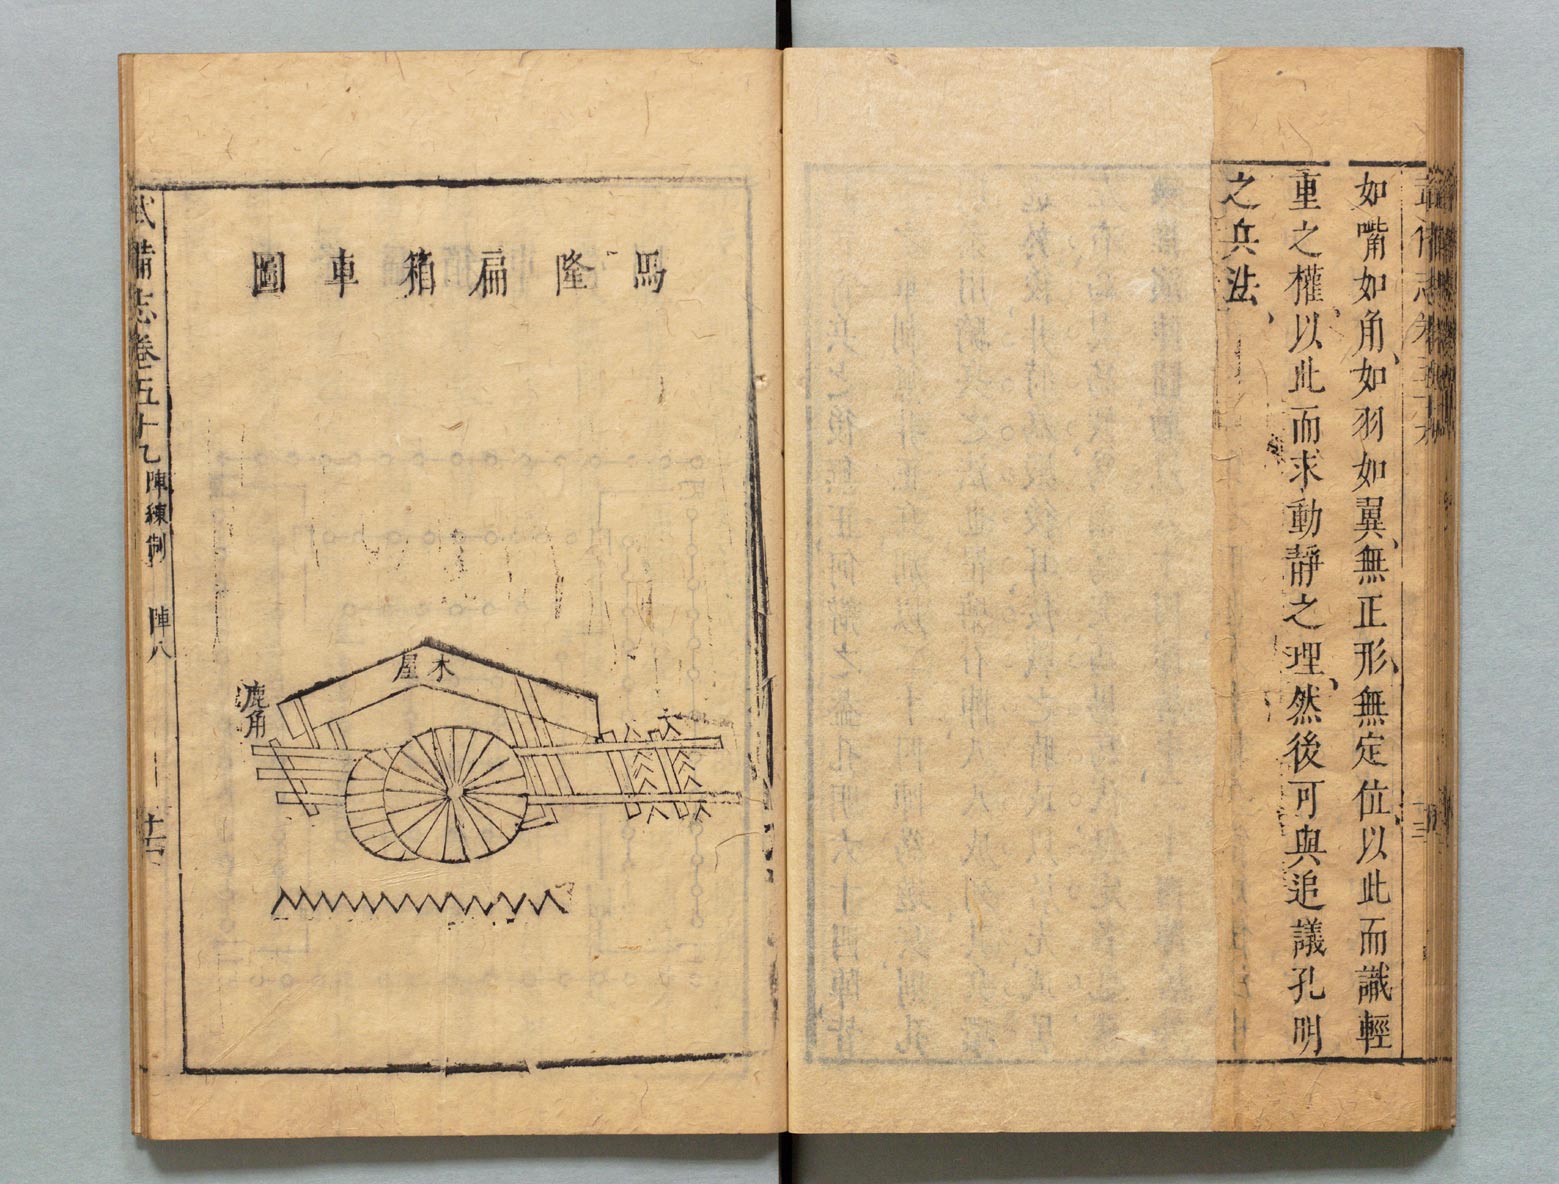 如嘴如角如羽如翼無正形無定位以此而識輕
重之權以此而求動靜之理然後可與追議孔明
之兵法
馬隆扁箱車圖
木屋
鹿角
武備志卷五十九 陣練制 陣八